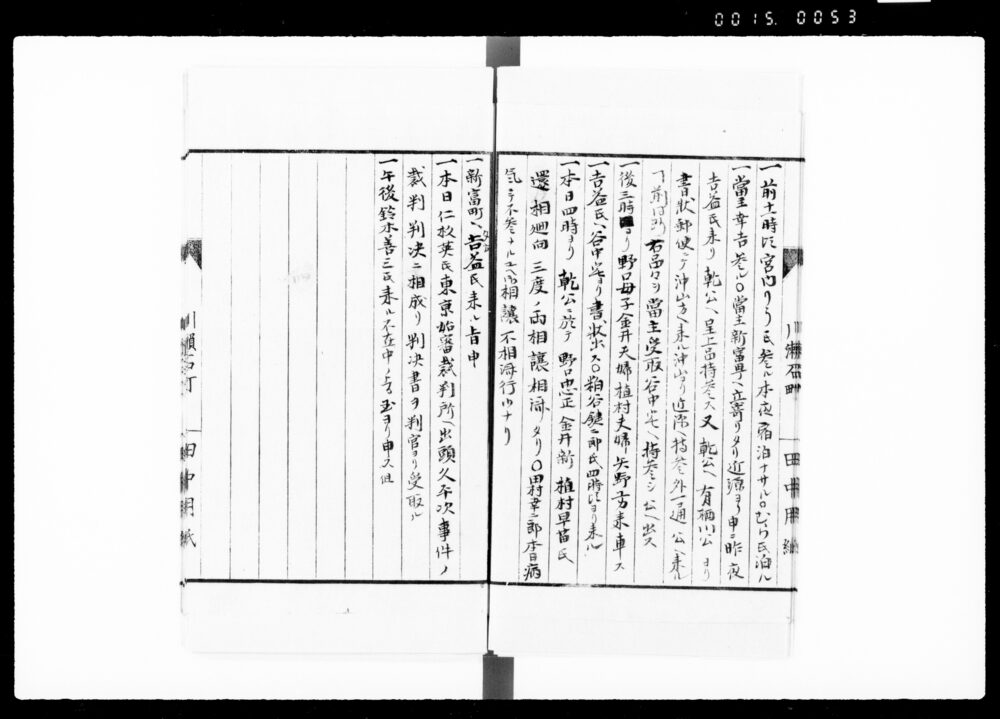 0015.0053
一前十一時比宮内りう氏参ル本夜宿泊ナサル○むら氏泊ル
一當主幸吉参ル○當主新富町ヘ立寄リタリ近源ヨリ申ニ昨夜
吉益氏来リ乾公ヘ呈上品持参ス又乾公ヘ有栖川公ヨリ
書状郵便ニテ沖山方ヘ来ル沖山ヨリ近源ヘ持参外一通公ヘ来ル
右品々ヲ當主受取谷中宅ヘ持参シ公ヘ出ス
一後三時ヨリ野口母子金井夫婦植村夫婦矢野方来車ス
一吉益氏ヘ谷中宅ヨリ書状出ス○粕谷鍵二郎氏四時比ヨリ来ル
一本日四時ヨリ乾公ニ於テ野口忠正金井新植村早苗氏
還相廻向三度ノ御相讓相済タリ○田村幸二郎本日病
気ニテ不参ナルユヘ御相讓不相済行ハナリ
一新富町ヘ吉益氏来ル旨申
一本日仁枚英氏東京始審裁判所ヘ出頭久平次事件ノ
裁判判决ニ相成リ判决書ヲ判官ヨリ受取ル
一午後鈴木善三氏来ル不在中ノよるヨリ申ス
川瀬石町
田中用紙
川瀬石町
田中用紙